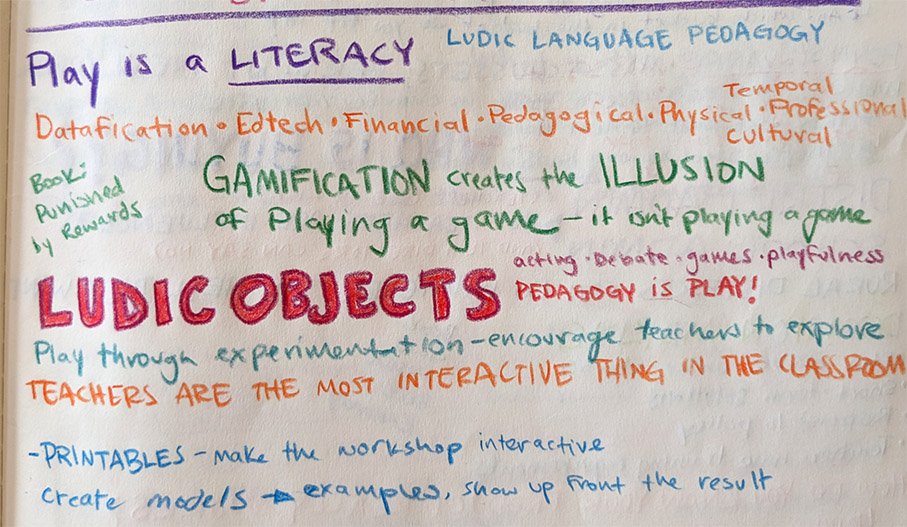 Play is a LITERACY
LUDIC LANGUAGE PEDAGOGY
Temporal
Datafication • Edtech • Financial • Pedagogical • Physical • Professional
Cultural
Book:
Punished
by Rewards
GAMIFICATION creates the ILLUSION
of Playing a game – it isn't playing a game
LUDIC OBJECTS
acting · Debate · games · playfulness
PEDAGOGY is PLAY!
Play through experimentation – encourage teachers to explore
TEACHERS ARE THE MOST INTERACTIVE THING IN THE CLASSROOM
- PRINTABLES - make the workshop interactive
create models → examples, show up front the result